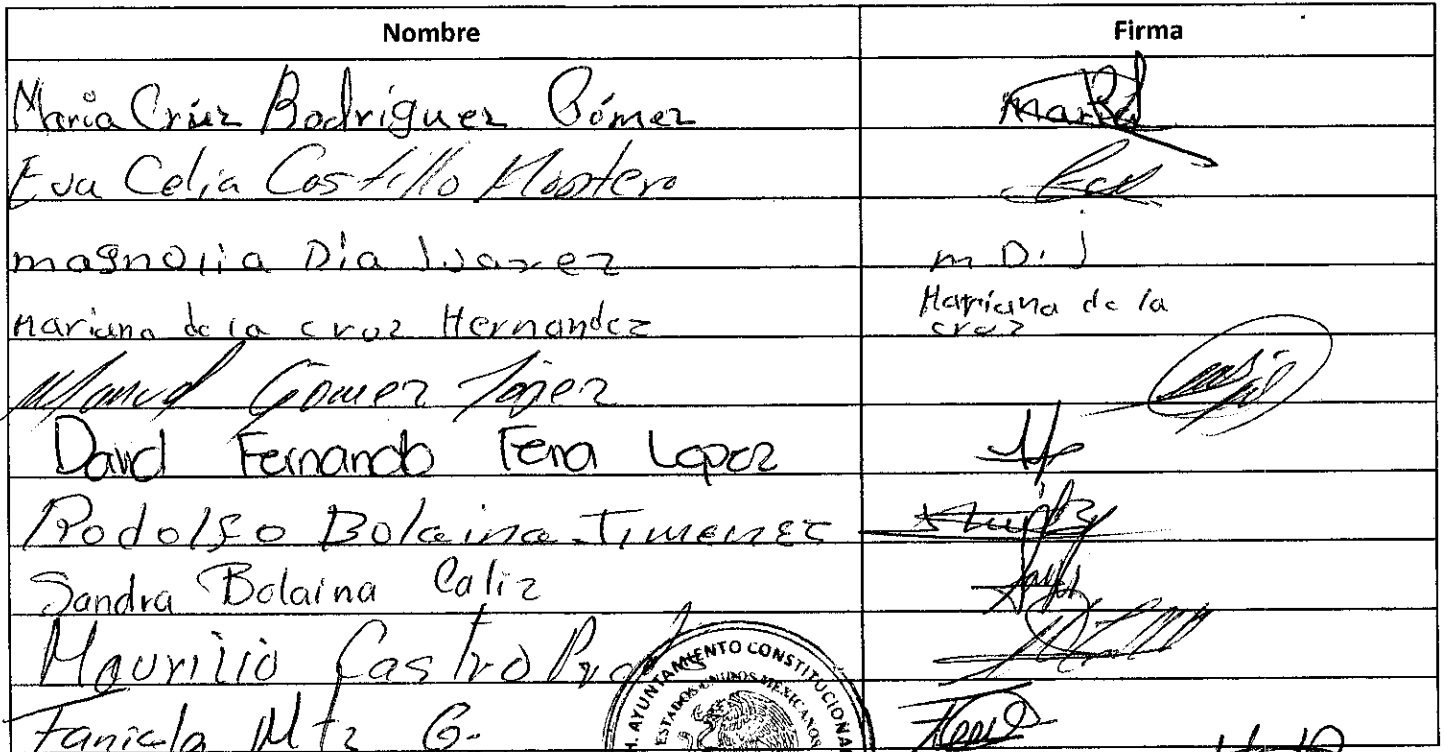 Nombre Firma
Maria Crúz Rodríguez Gómez
Eva Celia Castillo Montero
magnolia Dia Juarez m D. J
Mariana de la cruz Hernandez Mariana de la
cruz
Manuel Gomez Lopez
David Fernando Lopez
Rodolfo Bolaina Jimenez
Sandra Bolaina Caliz
Maurilio Castro
Mtz G.
H. AYUNTAMIENTO CONSTITUCIONAL
ESTADOS UNIDOS MEXICANOS